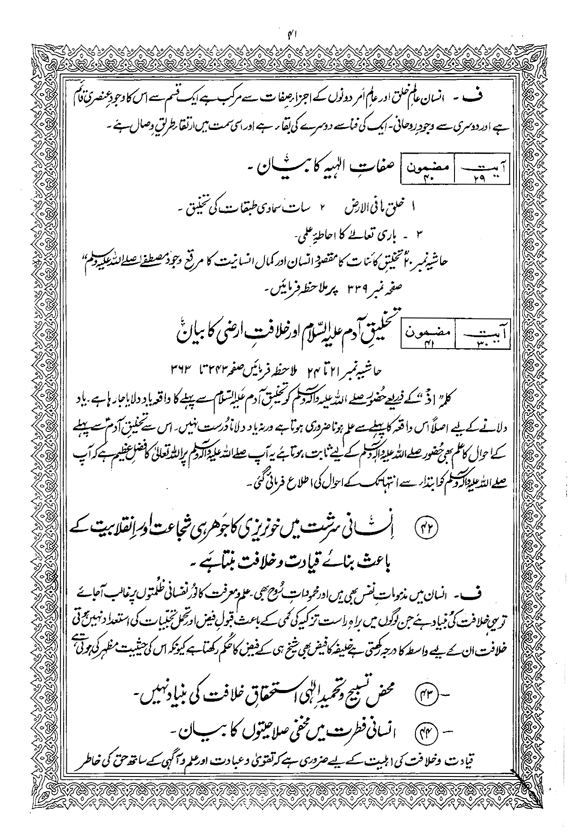 ۴۱
ف ۔ انسان عالم خلق اور عالم امر دونوں کے اجزاء و صفات سے مرکب ہے ایک قسم سے اس کا وجود عنصری قائم
ہے اور دوسری سے وجود روحانی۔ ایک کی فنا سے دوسرے کی لقاء ہے اور اسی سمت میں ارتقاء طریق وصال ہے۔
آیت ۲۹ مضمون ۴۰ صفات الٰہیہ کا بیان ۔
۱ خلق مافی الارض ۲ سات سماوی طبقات کی تحقیق ۔
۳ ۔ باری تعالےٰ کا احاطۂ علمی
حاشیہ نمبر ۲۰ تخلیق کائنات کا مقصود انسان اور کمال انسانیت کا مرقع وجود مصطفےٰ صلے اللہ علیہ وسلم
صفحہ نمبر ۳۳۹ پر ملاحظہ فرمائیں۔
آیت ۳۰ مضمون ۴۱ تخلیق آدم علیہ السلام اور خلافت ارضی کا بیان
حاشیہ نمبر ۲۱ تا ۲۴ ملاحظہ فرمائیں صفحہ ۲۴۳ تا ۳۶۳
کلمہ "اذ" کے ذریعے حضور صلے اللہ علیہ وآلہ وسلم کو تخلیق آدم علیہ السلام سے پہلے کا واقعہ یاد دلایا جا رہا ہے۔ یاد
دلانے کے لیے اصلاً اس واقعہ کا پہلے سے علم ہونا ضروری ہوتا ہے ورنہ یاد دلانا درست نہیں۔ اس سے تخلیق آدم سے پہلے
کے احوال کا علم بھی حضور صلے اللہ علیہ وآلہ وسلم کے لیے ثابت ہوتا ہے یہ آپ صلے اللہ علیہ وآلہ وسلم پر اللہ تعالیٰ کا فضل عظیم ہے کہ آپ
صلے اللہ علیہ وآلہ وسلم کو ابتداء سے انتہا تک کے احوال کی اطلاع فرمائی گئی۔
۴۲ انسانی سرشت میں خونریزی کا جوہر ہی شجاعت اور انقلابیت کے
باعث بنائے قیادت و خلافت بنتا ہے۔
ف ۔ انسان میں مذمومات نفس بھی ہیں اور محمودات روح بھی، علم و معرفت کا نور نفسانی ظلمتوں پر غالب آجائے
تو یہی خلافت کی بنیاد ہے جن لوگوں میں براہ راست تزکیہ کی کمی کے باعث قبول فیض اور تحمل تجلیات کی استعداد نہیں ہوتی
خلافت ان کے لیے واسطہ کا درجہ رکھتی ہے خلیفہ کا فیض بھی شیخ ہی کے فیض کا حکم رکھتا ہے کیونکہ اس کی حیثیت مظہر کی ہوتی ہے
۴۳ ۔ محض تسبیح و تحمید الٰہی استحقاق خلافت کی بنیاد نہیں۔
۴۴ ۔ انسانی فطرت میں مخفی صلاحیتوں کا بیان ۔
قیادت و خلافت کی اہلیت کے لیے ضروری ہے کہ تقویٰ و عبادت اور علم و آگہی کے ساتھ حق کی خاطر